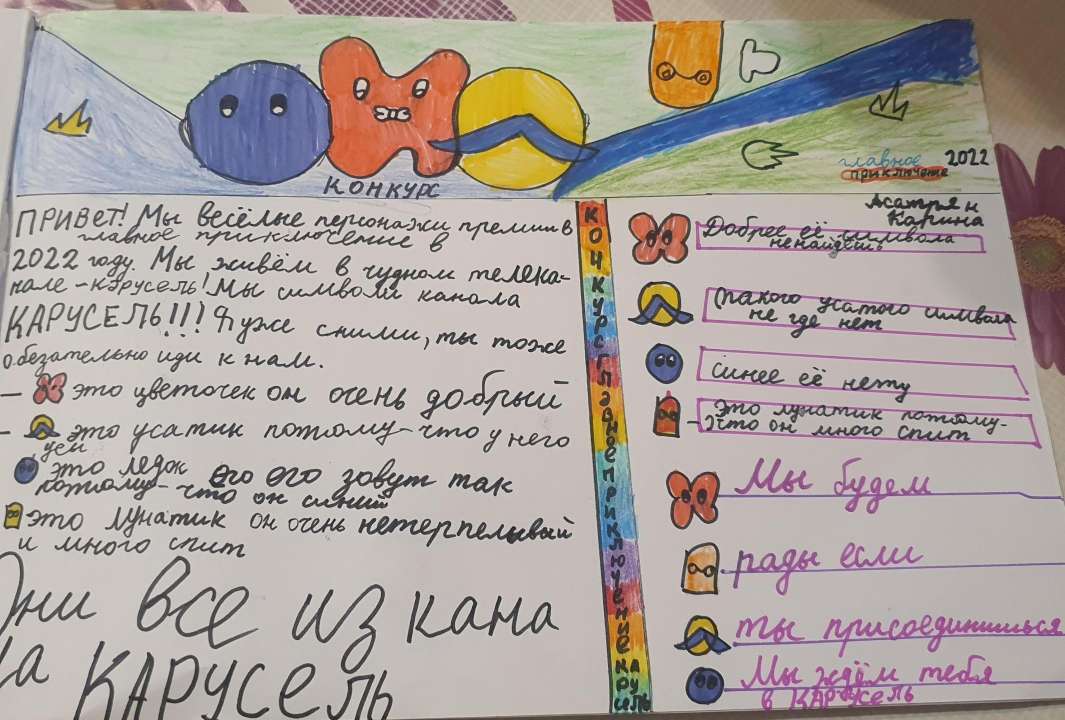 главное 2022
приключение
КОНКУРС
ПРИВЕТ! Мы весёлые персонажи премиив
главное приключение в
2022 году. Мы живём в чудном телека-
нале-карусель! Мы символи канала
КАРУСЕЛЬ!!! Я уже сними, ты тоже
обезательно иди к нам.
- это цветочек он очень добрый
- это усатик потому-что у него
это ледок его его зовут так
потому-что он синий
это лунатик он очень нетерпелывый
и много спит
Они все из кана
ла КАРУСЕЛЬ
КОНКУРС ГЛАВНОЕ ПРИКЛЮЧЕНИЕ КАРУСЕЛЬ
Асатрян
Карина
Добрее её символа
ненайдёшь
Такого усатого символа
не где нет
синее её нету
это лунатик потому-
что он много спит
Мы будем
рады если
ты присоединишься
Мы ждём тебя
в КАРУСЕЛЬ